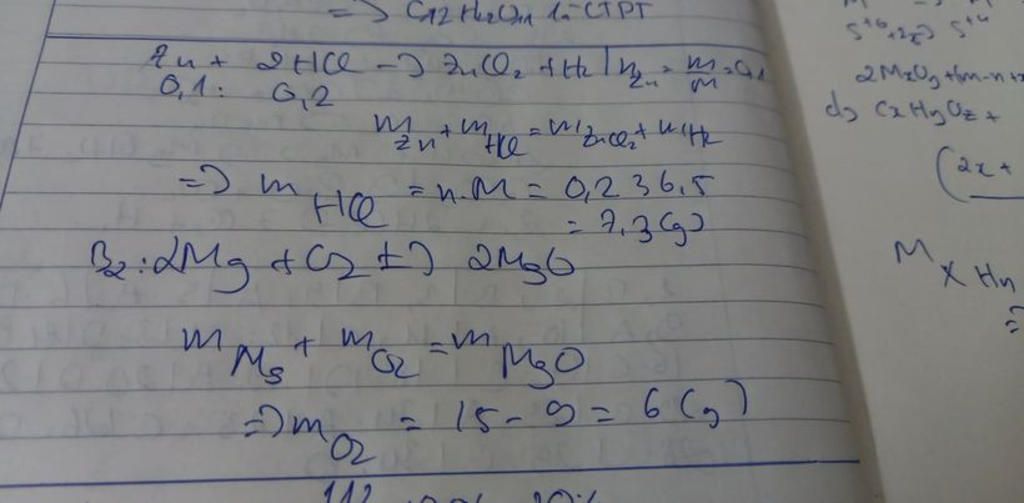 => C12H22O11 là CTPT
Zn + 2HCl -> ZnCl2 + H2 | nZn = m/M = 0,1
0,1 : 0,2
mZn + mHCl = mZnCl2 + mH2
=> mHCl = n.M = 0,2 36,5
= 7,3 (g)
B2: 2Mg + O2 -> 2MgO
mMg + mO2 = mMgO
=> mO2 = 15 - 9 = 6 (g)
S+6 +2e -> S+4
d) CxHyOz +
(2x +
MxHn
=>